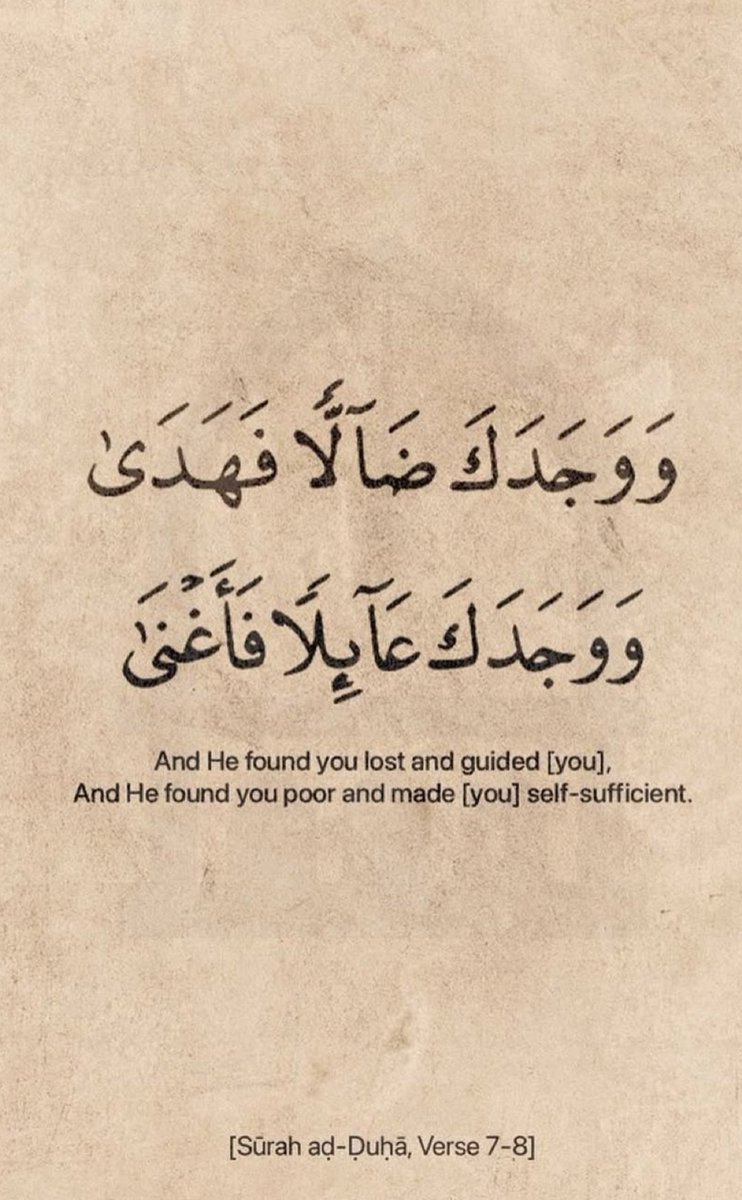 وَوَجَدَكَ ضَآلًّا فَهَدَىٰ
وَوَجَدَكَ عَآئِلًا فَأَغْنَىٰ
And He found you lost and guided [you],
And He found you poor and made [you] self-sufficient.
[Sūrah aḍ-Ḍuḥā, Verse 7-8]